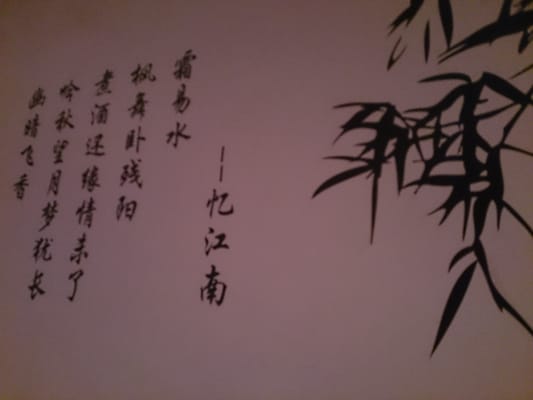 ——忆江南
霜易水
枫舞卧残阳
煮酒还缘情未了
吟秋望月梦犹长
幽暗飞香